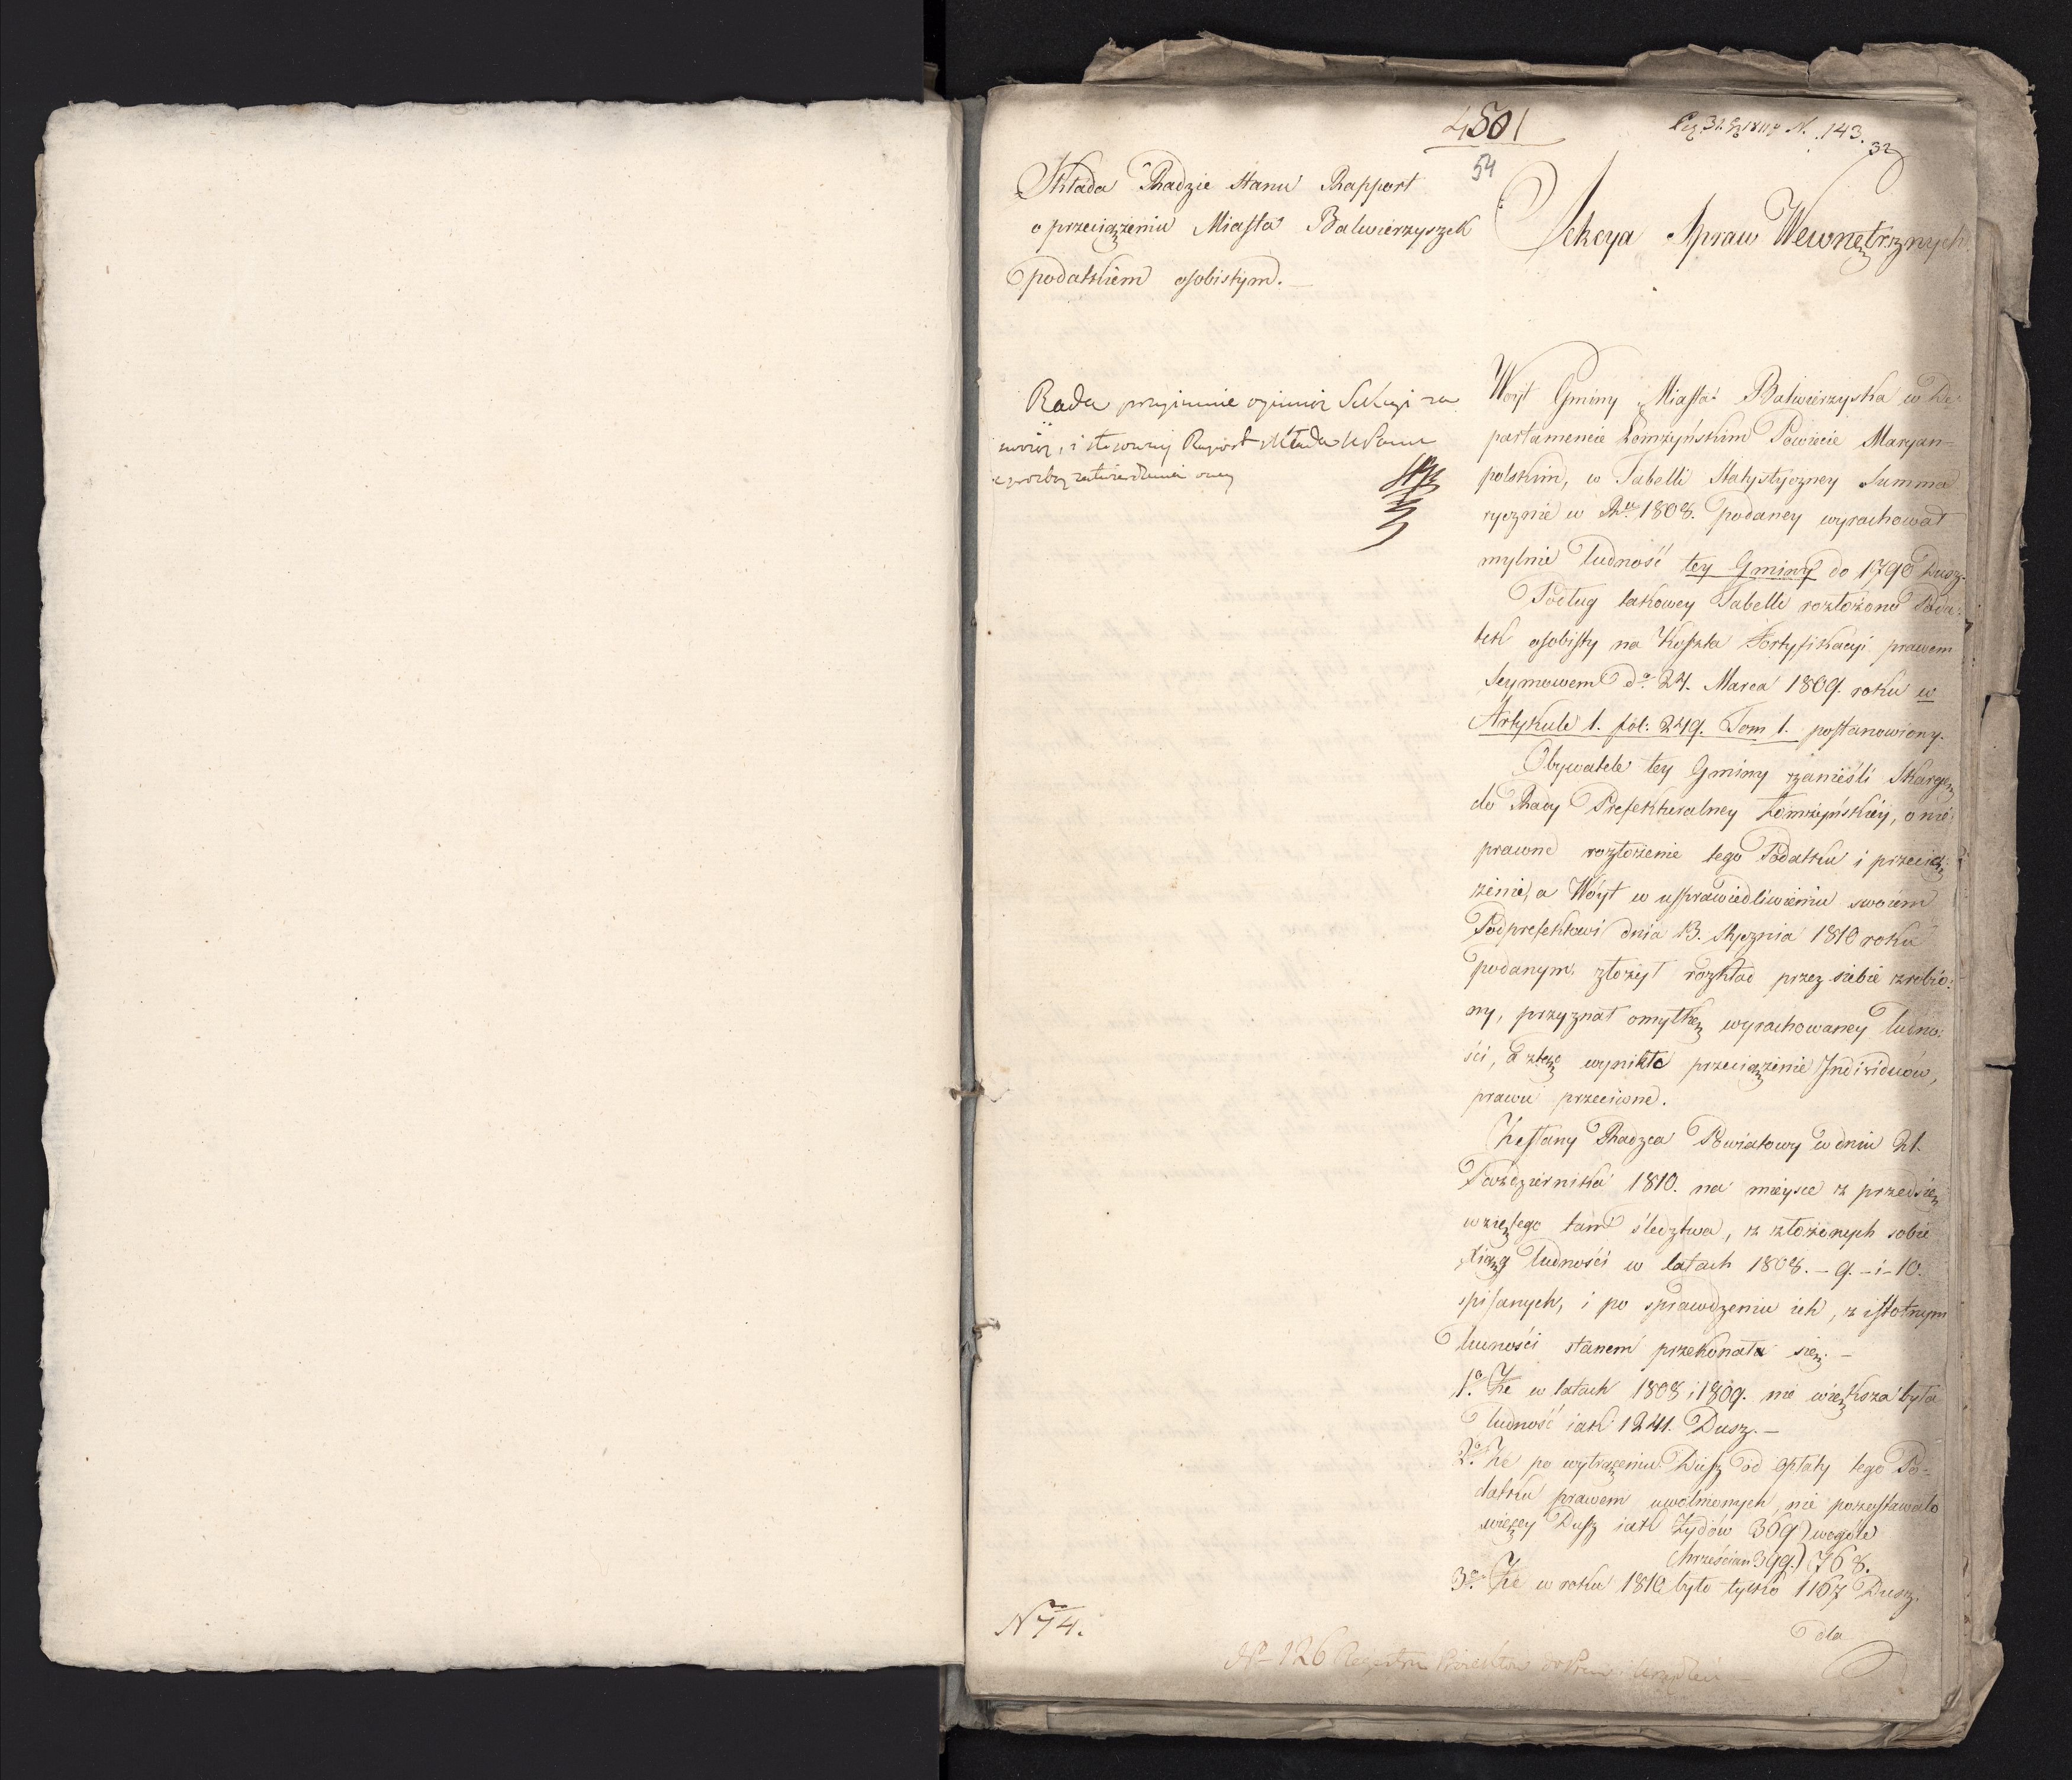 4801
54
N. 143.
32
Składa Radzie Stanu Rapport
o przeciążeniu Miasta Balwierzyszek
podatkiem osobistym. —
Sekcya Spraw Wewnętrznych
Rada przyimuie opinią Sekcyi za
swoią, i stosowny Raport składa
z prozbą zatwierdzenia
Woyt Gminy Miasta Balwierzyska w De-
partamencie Łomżyńskim Powiecie Maryan-
polskim, w Tabelli Statystyczney Summa
rycznie w Rku 1808. podaney wyrachował
mylnie ludność tey Gminy do 1790 Dusz.
Podług takowey Tabelli rozłożono Poda-
tek osobisty na Koszta Fortyfikacyi prawem
Seymowem do. 24. Marca 1809. roku w
Artykule 1. fol: 249. Tom 1. postanowiony.
Obywatele tey Gminy zanieśli Skargę
do Rady Prefekturalney Łomżyńskiey, o nie-
prawne rozłożenie tego Podatku i przecią-
żenie, a Wóyt w usprawiedliwieniu swoiem
Podprefektowi dnia 13. Stycznia 1810 roku
podanym, złożył rozkład przez siebie zrobio-
ny, przyznał omyłkę wyrachowaney ludno-
ści, a ztąd wynikłe przeciążenie Individuów,
prawu przeciwne.
Zesłany Radzca Powiatowy w dniu 21.
Października 1810. na mieysce z przedsię
wziętego tam śledztwa, z złożonych sobie
xiąg ludności w latach 1808. – 9. – i – 10.
spisanych, i po sprawdzeniu ich, z istotnym
ludności stanem przekonała się. —
1o. Że w latach 1808 i 1809. nie większa była
ludność iak 1241. Dusz. —
2o. Że po wytrąceniu Dusz od opłaty tego Po-
datku prawem uwolnionych, nie pozostawało
więcey Dusz iak Żydów 369) wogóle
Chrześcian 399.) 768.
3o. Że w roku 1810 było tylko 1167 Dusz.
dla
N 74.
No 126